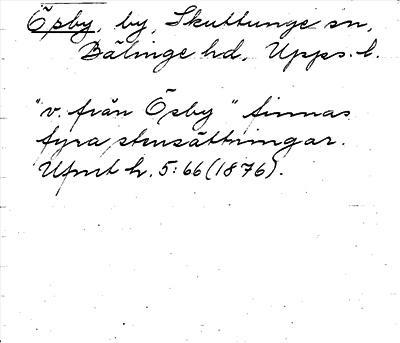 Öpby, by, Skuttunge sn,
Bälinge hd, Upps. l.
"v. från Ösby" finnas
fyra stensättningar.
Ufmt h. 5:66 (1876).